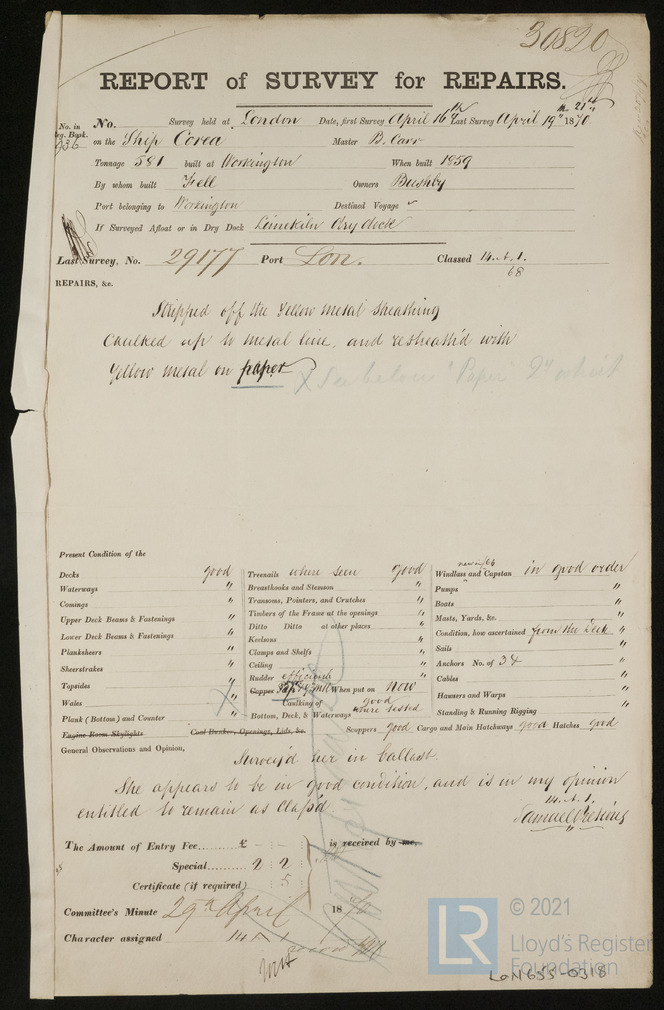 30820
REPORT of SURVEY for REPAIRS.
No. in Reg. Book. 936
No. Survey held at London Date, first Survey April 16th Last Survey April 19th 1870.
& 21st
on the Ship Corea Master B. Carr
Tonnage 581 built at Workington When built 1859
By whom built Fell Owners Bushby
Port belonging to Workington Destined Voyage
If Surveyed Afloat or in Dry Dock Limekiln dry dock
Last Survey, No. 29177 Port Lon. Classed 14.A.1.
68
REPAIRS, &c.
Stripped off the Yellow metal sheathing
Caulked up to metal line, and resheath'd with
Yellow metal on paper X See below "Paper"
Present Condition of the
Decks good Treenails where seen good Windlass and Capstan new in /66 in good order
Waterways " Breasthooks and Stemson " Pumps "
Comings " Transoms, Pointers, and Crutches " Boats "
Upper Deck Beams & Fastenings " Timbers of the Frame at the openings " Masts, Yards, &c. "
Lower Deck Beams & Fastenings " Ditto Ditto at other places " Condition, how ascertained from the Deck "
Planksheers " Keelsons " Sails "
Sheerstrakes " Clamps and Shelfs " Anchors No. of 34 "
Topsides " Ceiling " Cables "
Wales " Rudder efficient " Hawsers and Warps "
Plank (Bottom) and Counter " Copper When put on Now Standing & Running Rigging "
Caulking of Bottom, Deck, & Waterways good where tested
Engine Room Skylights Coal Bunker, Openings, Lids, &c. Scuppers good Cargo and Main Hatchways good Hatches good
General Observations and Opinion,
Survey'd her in ballast.
She appears to be in good condition, and is in my opinion
entitled to remain as Class'd 14.A.1.
Samuel
The Amount of Entry Fee £ - - is received by me,
Special 2 2
Certificate (if required) 5
Committee's Minute 29th April 1870
Character assigned 14 A 1
© 2021
LR
Lloyd's Register
Foundation
LON655-0318